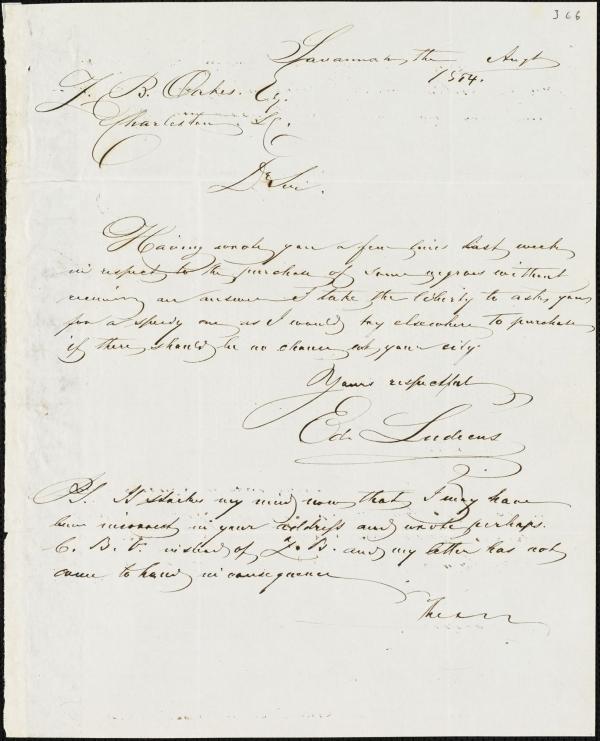 366
Savannah, the Augt
1854.
Z. B. Oakes. Esq.
Charleston SC.
Dr Sir.
Having wrote you a few lines last week
in respect to the purchase of some negroes without
receiving an answer I take the liberty to ask you
for a speedy one, as I would try elsewhere to purchase
if there should be no chance at your city.
Yours respectful
Ed.
PS. It strikes my mind now that I may have
been incorrect in your address and wrote perhaps.
C. B. instead of Z. B. and my letter has not
come to hand in consequence
The